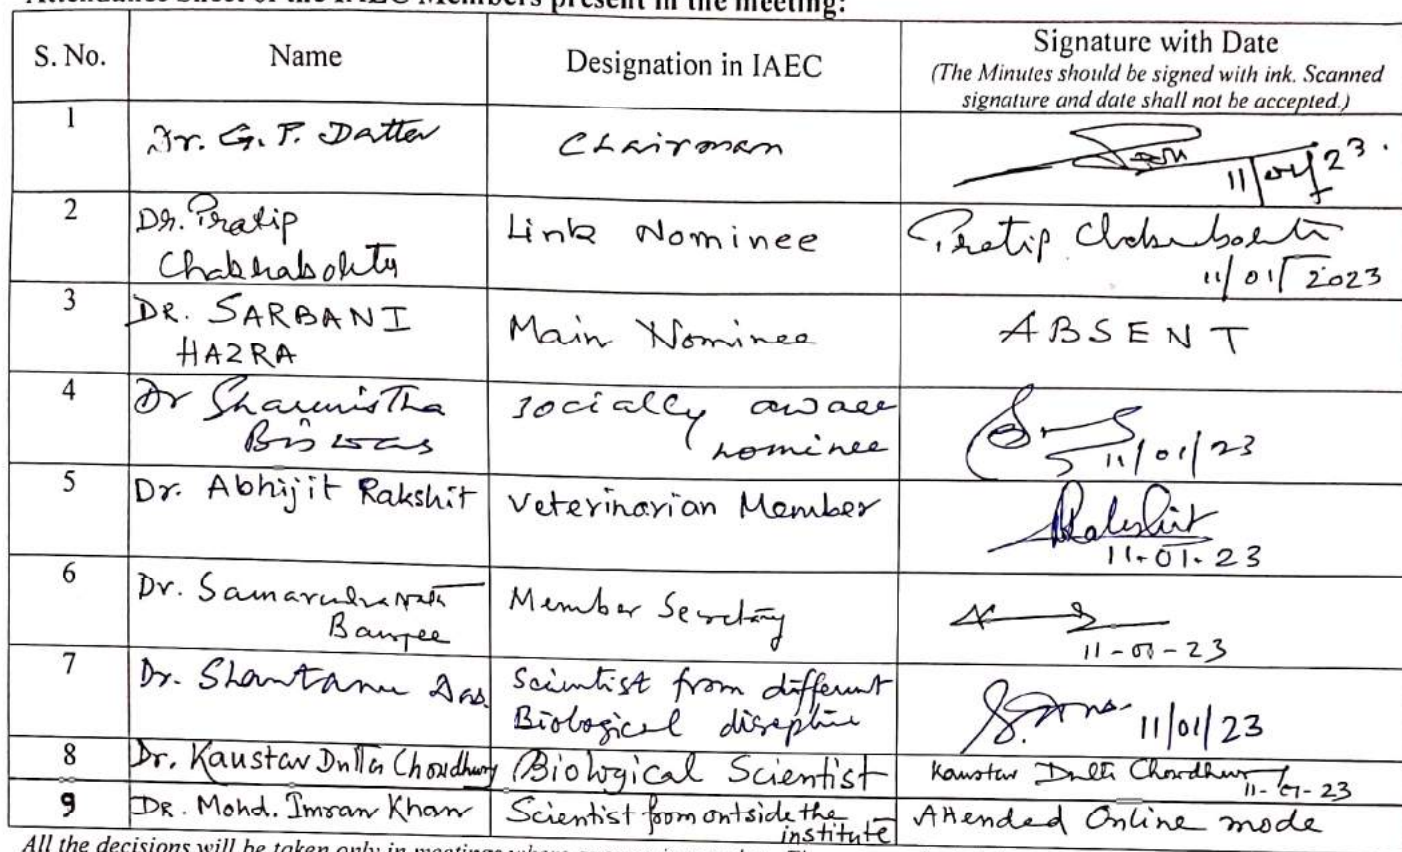 Attendance Sheet of the IAEC Members present in the meeting:
S. No.
Name
Designation in IAEC
Signature with Date
(The Minutes should be signed with ink. Scanned
signature and date shall not be accepted.)
1
Dr. G. P. Datta
Chairman
11/01/23.
2
Dr. Pratip
Chakraborty
Link Nominee
Pratip Chakraborty
11/01/2023
3
DR. SARBANI
HAZRA
Main Nominee
ABSENT
4
Dr Sharmistha
Biswas
socially aware
nominee
11/01/23
5
Dr. Abhijit Rakshit
Veterinarian Member
ARakshit
11-01-23
6
Dr. Samarendra Nath
Banerjee
Member Secretary
11-01-23
7
Dr. Shantanu Das.
Scientist from different
Biological discipline
S. Das
11/01/23
8
Dr. Kaustav Dutta Chowdhury
Biological Scientist
Kaustav Dutta Chowdhury
11-01-23
9
DR. Mohd. Imran Khan
Scientist from outside the
institute
Attended Online mode
All the decisions will be taken only in meetings where